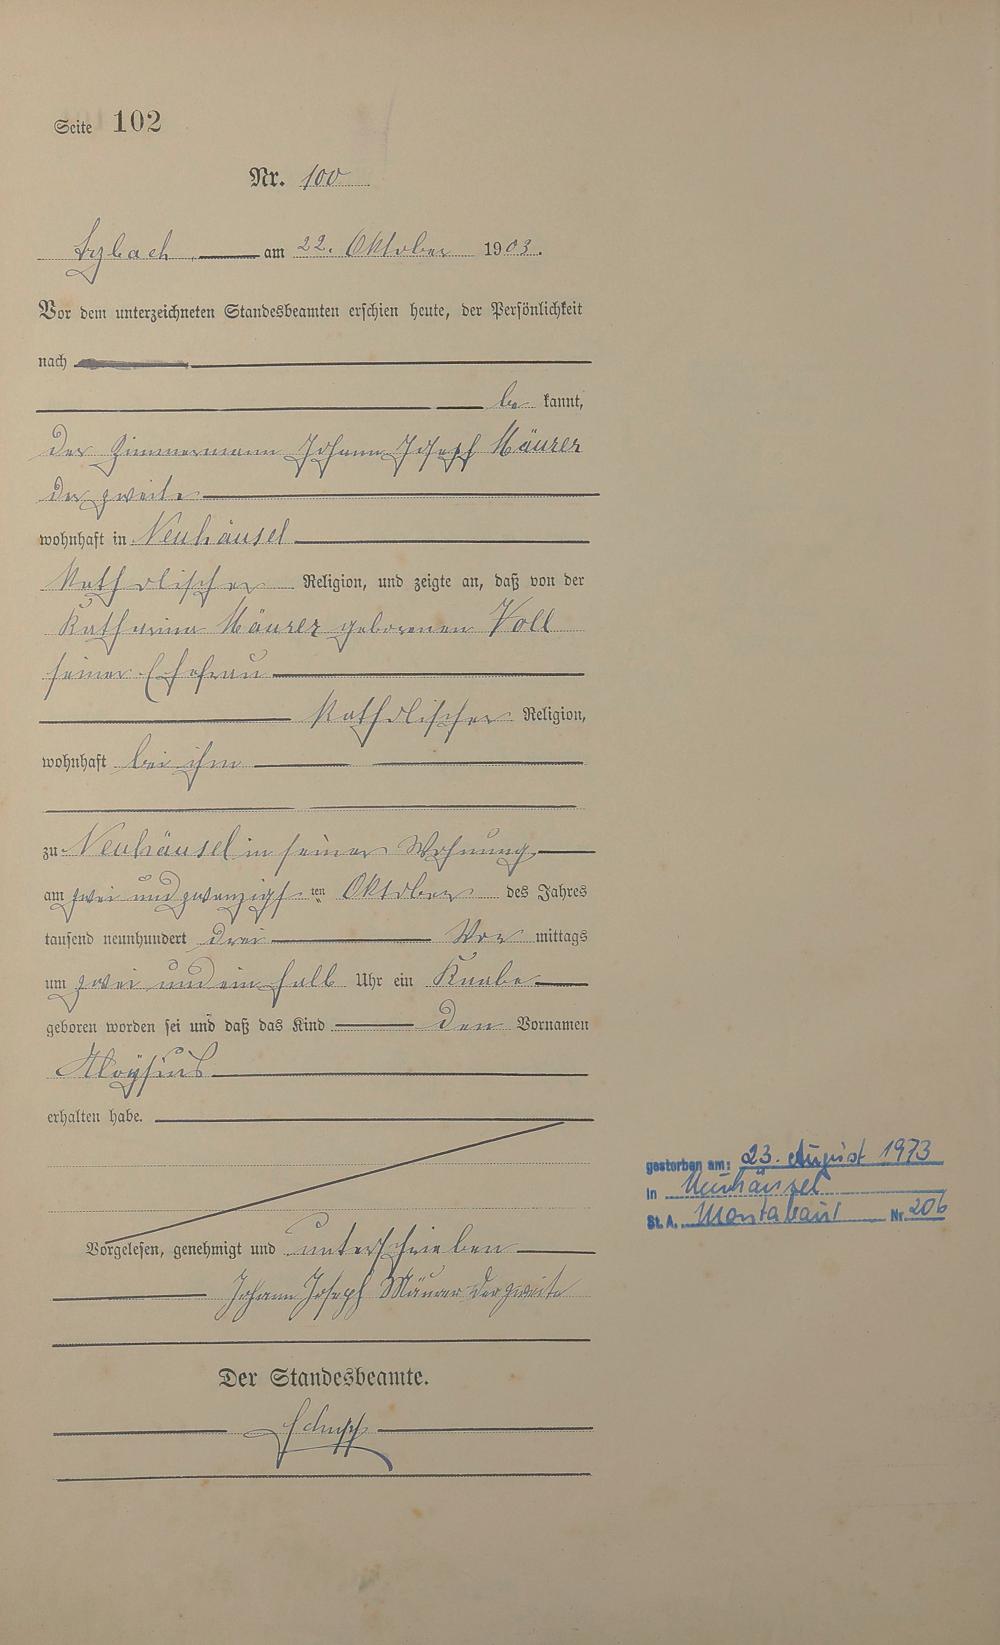 Seite 102
Nr. 100
am 22. Oktober 1903.
Vor dem unterzeichneten Standesbeamten erschien heute, der Persönlichkeit
nach
be kannt,
der Zimmermann Johann Joseph Mäurer
der zweite
wohnhaft in Neuhäusel
katholischer Religion, und zeigte an, daß von der
Katharina Mäurer geborenen Voll
seiner Ehefrau
katholischer Religion,
wohnhaft bei ihm
zu Neuhäusel in seiner Wohnung
am zwei und zwanzigsten Oktober des Jahres
tausend neunhundert drei Vor mittags
um zwei und ein halb Uhr ein Knabe
geboren worden sei und daß das Kind den Vornamen
Aloysius
erhalten habe.
Vorgelesen, genehmigt und unterschrieben
Johann Joseph Mäurer der zweite
Der Standesbeamte.
gestorben am: 23. August 1973
in Neuhäusel
St. A. Montabaur Nr. 206